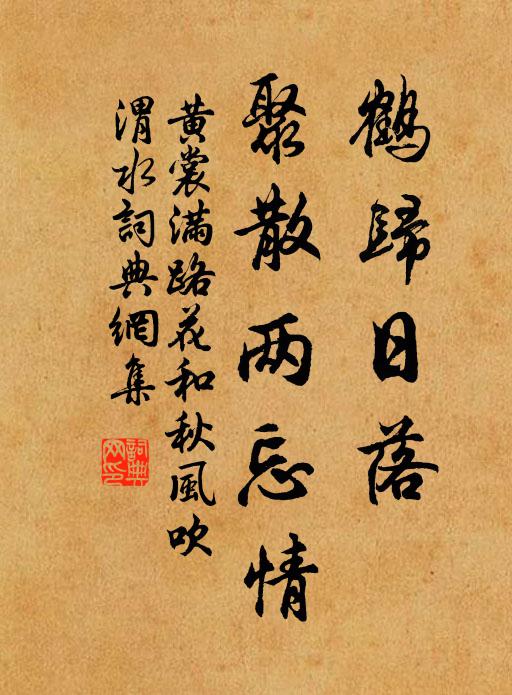 鶴歸日落
聚散两忘情
黄裳满路花和秋風吹
渭水詞典網集
詞典网印